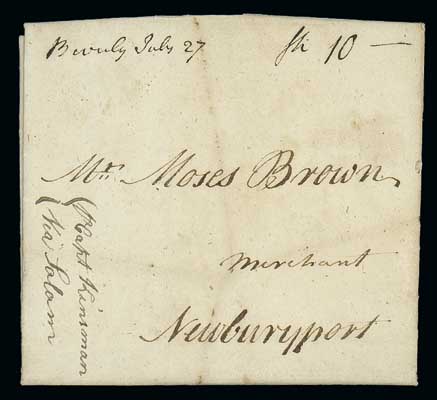 Beverly July 27 Sh 10 —
Mr. Moses Brown
Merchant
Newburyport
Capt Kinsman
Via Salem